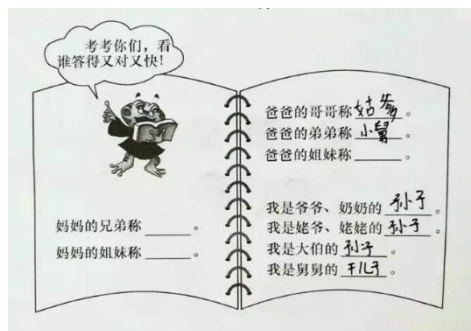 考考你们，看
谁答得又对又快！
妈妈的兄弟称______。
妈妈的姐妹称______。
爸爸的哥哥称 姑爹 。
爸爸的弟弟称 小舅 。
爸爸的姐妹称______。
我是爷爷、奶奶的 孙子 。
我是姥爷、姥姥的 孙子 。
我是大伯的 孙子 。
我是舅舅的 干儿子 。